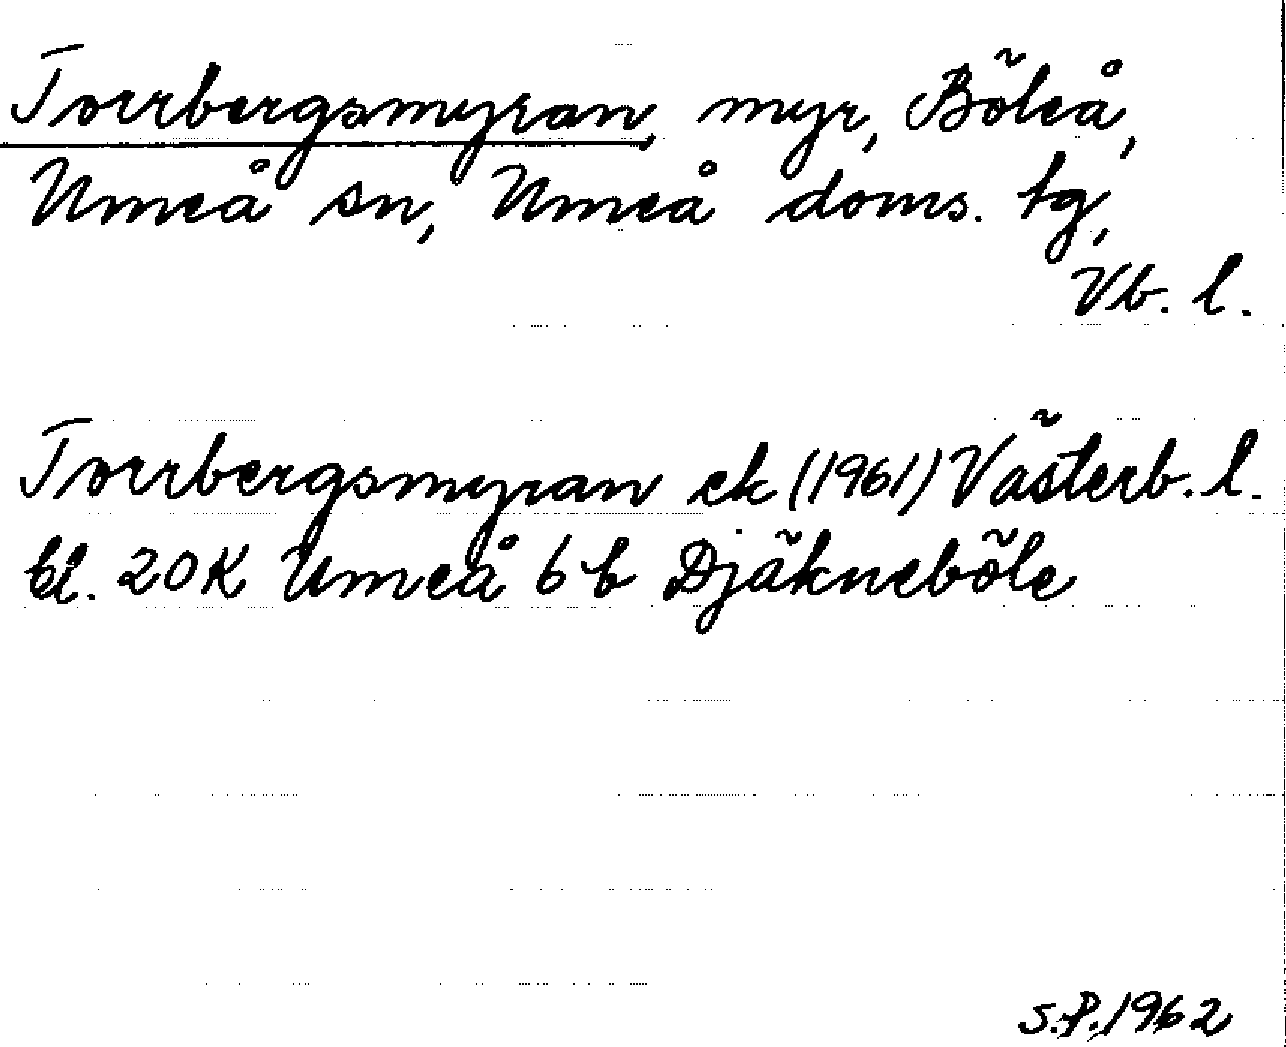 Torrbergsmyran, myr, Böleå,
Umeå sn, Umeå doms. tg,
Vb. l.
Torrbergsmyran ek (1961) Västerb. l.
bl. 20K Umeå 6b Djäkneböle
S.P. 1962